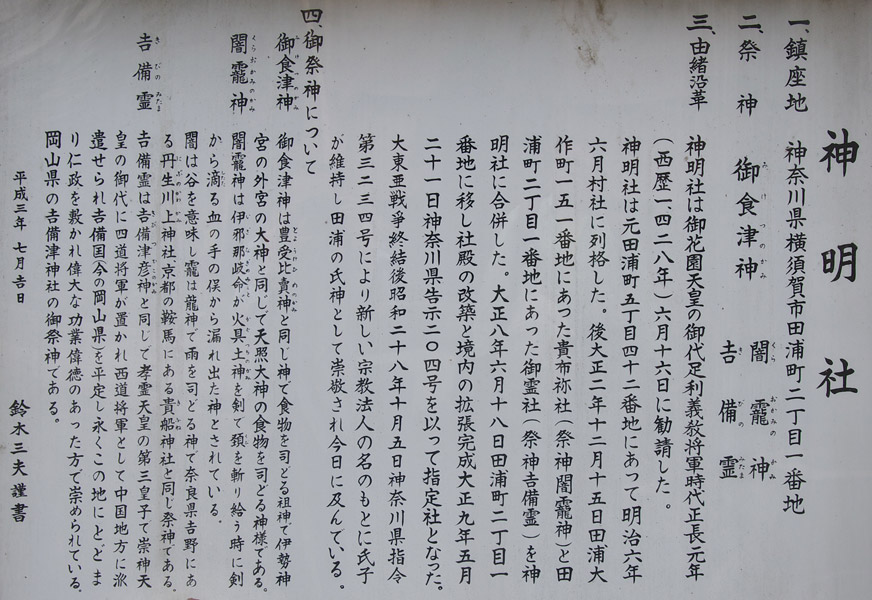 神明社
一、鎮座地　神奈川県横須賀市田浦町二丁目一番地
二、祭神　御食津神　闇龗神
吉備霊
三、由緒沿革　神明社は御花園天皇の御代足利義教将軍時代正長元年
(西歴一四二八年)六月十六日に勧請した。
神明社は元田浦町五丁目四十二番地にあって明治六年
六月村社に列格した。後大正二年十二月十五日田浦大
作町一五一番地にあった貴布祢社(祭神闇龗神)と田
浦町二丁目一番地にあった御霊社(祭神吉備霊)を神
明社に合併した。大正八年六月十八日田浦町二丁目一
番地に移し社殿の改築と境内の拡張完成大正九年五月
二十一日神奈川県告示二〇四号を以って指定社となった。
大東亜戦争終結後昭和二十八年十月五日神奈川県指令
第三二三四号により新しい宗教法人の名のもとに氏子
が維持し田浦の氏神として崇敬され今日に及んでいる。
四、御祭神について
御食津神　御食津神は豊受比貴神と同じ神で食物を司どる祖神で伊勢神
宮の外宮の大神と同じで天照大神の食物を司どる神様である。
闇龗神　闇龗神は伊邪那歧命が火具土神を剣で頚を斬り給う時に剣
から滴る血の手の俣から漏れ出た神とされている。
闇は谷を意味し龗は龍神で雨を司どる神で奈良県吉野にあ
る丹生川上神社京都の鞍馬にある貴船神社と同じ祭神である。
吉備霊　吉備霊は吉備津彦神と同じで孝霊天皇の第三皇子で崇神天
皇の御代に四道将軍が置かれ西道将軍として中国地方に派
遣せられ吉備国(今の岡山県)を平定し永くこの地にとどま
り仁政を敷かれ偉大な功業偉徳のあった方で崇められている。
岡山県の吉備津神社の御祭神である。
平成三年　七月吉日　鈴木三夫謹書